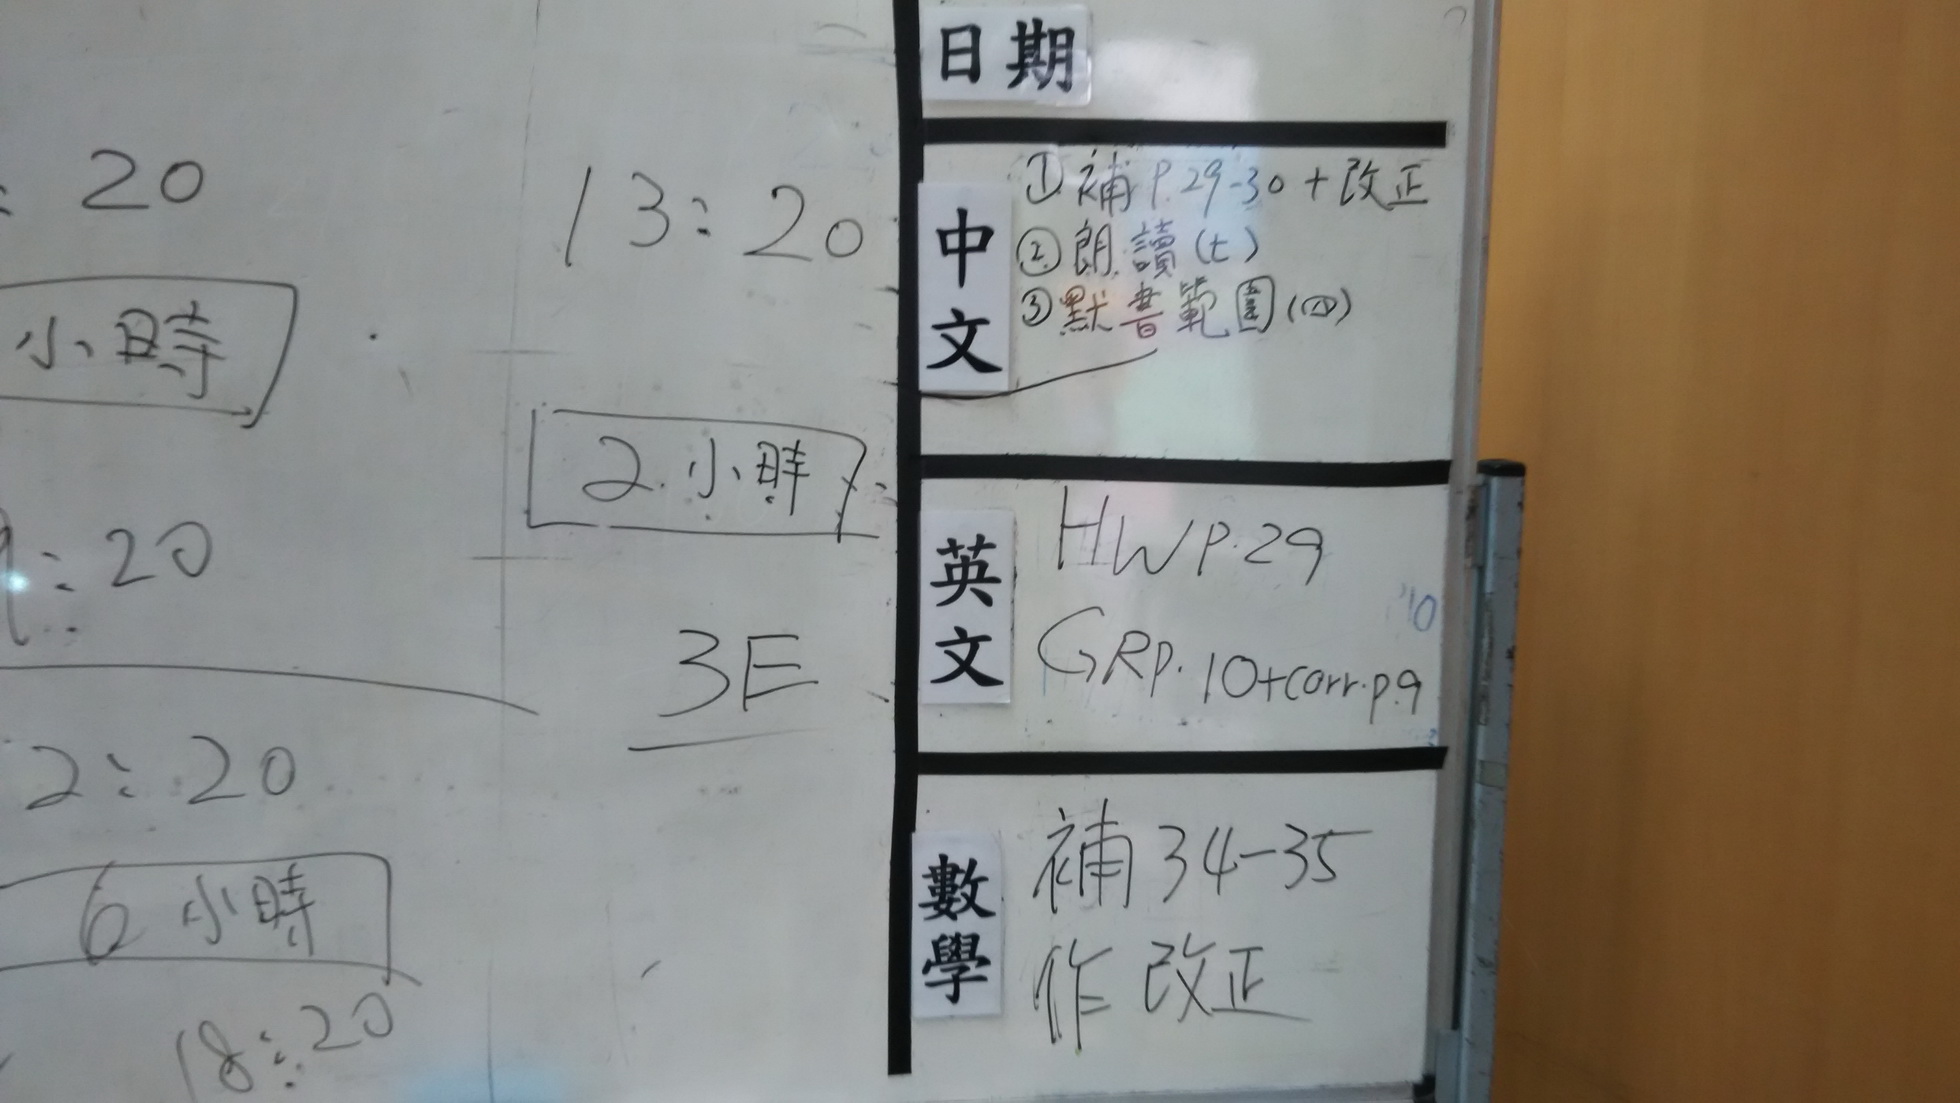 : 20
小時
9:20
2:20
6 小時
18:20
13:20
2 小時
3E
日期
中文
①補 P.29-30 + 改正
②朗讀(七)
③默書範圍(四)
英文
HW P.29
GR p. 10+corr.p.9
10
數學
補 34-35
作 改正